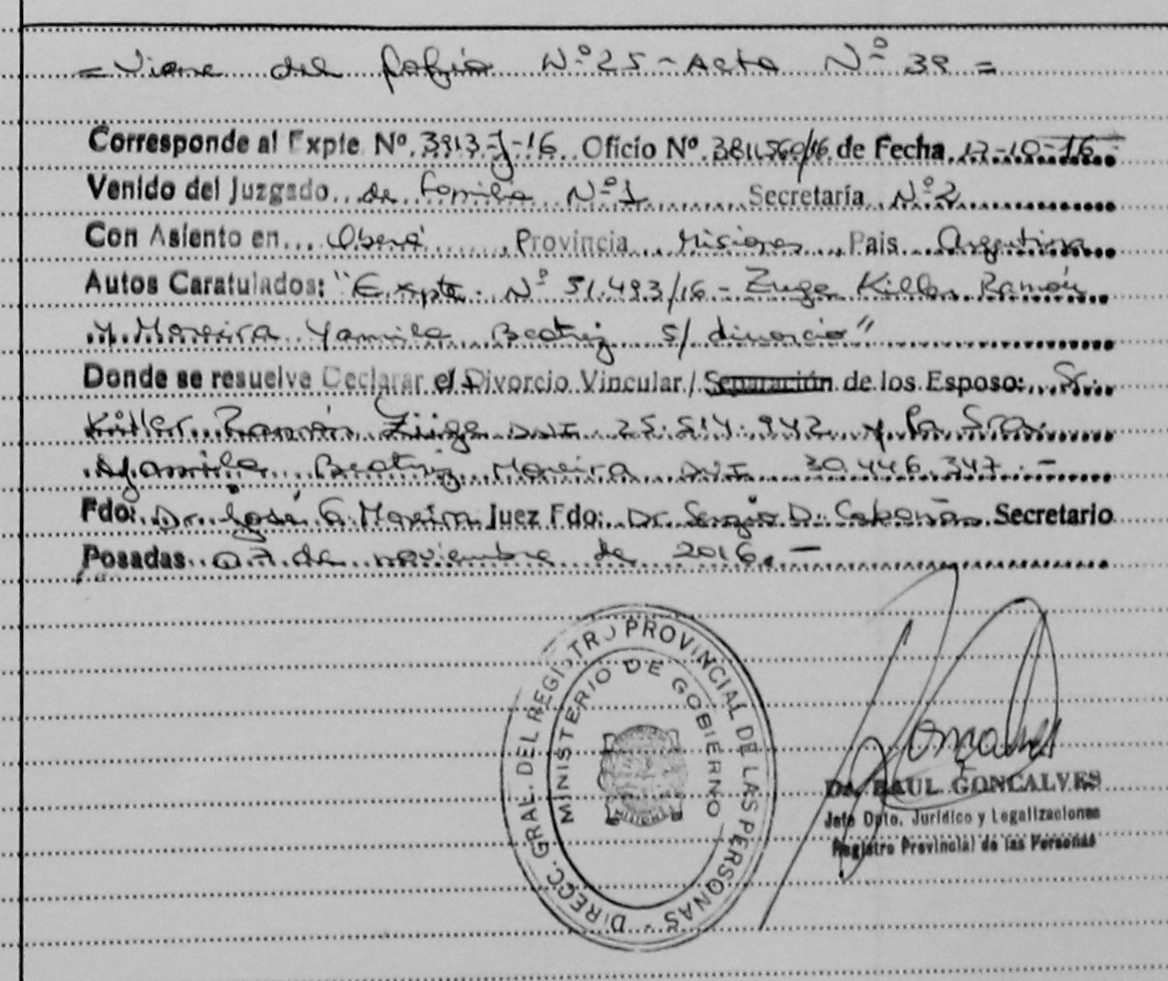 = Viene del folio Nº 25 - Acta Nº 39 =
Corresponde al Expte Nº. 3913-J-16. Oficio Nº. 3811560/16 de Fecha 17-10-16
Venido del Juzgado de Familia Nº 1 Secretaría Nº 2
Con Asiento en Oberá Provincia Misiones País Argentina
Autos Caratulados: "Expte. Nº 51.493/16 - Zuge Killer Ramón
y Moreira Yamila Beatriz s/ divorcio"
Donde se resuelve Declarar el Divorcio Vincular / Separación de los Esposo: Sr.
Killer Ramón Züge DNI 25.514.942 y la Sra.
Yamila Beatriz Moreira DNI 30.446.347.-
Fdo: Dr. José G. Moreira Juez Fdo: Dr. Sergio D. Cabañas Secretario
Posadas 07 de noviembre de 2016.-
DIRECC. GRAL. DEL REGISTRO PROVINCIAL DE LAS PERSONAS -
MINISTERIO DE GOBIERNO
MISIONES
Gonçalves
Dr. RAUL GONCALVES
Jefe Dpto. Jurídico y Legalizaciones
Registro Provincial de las Personas